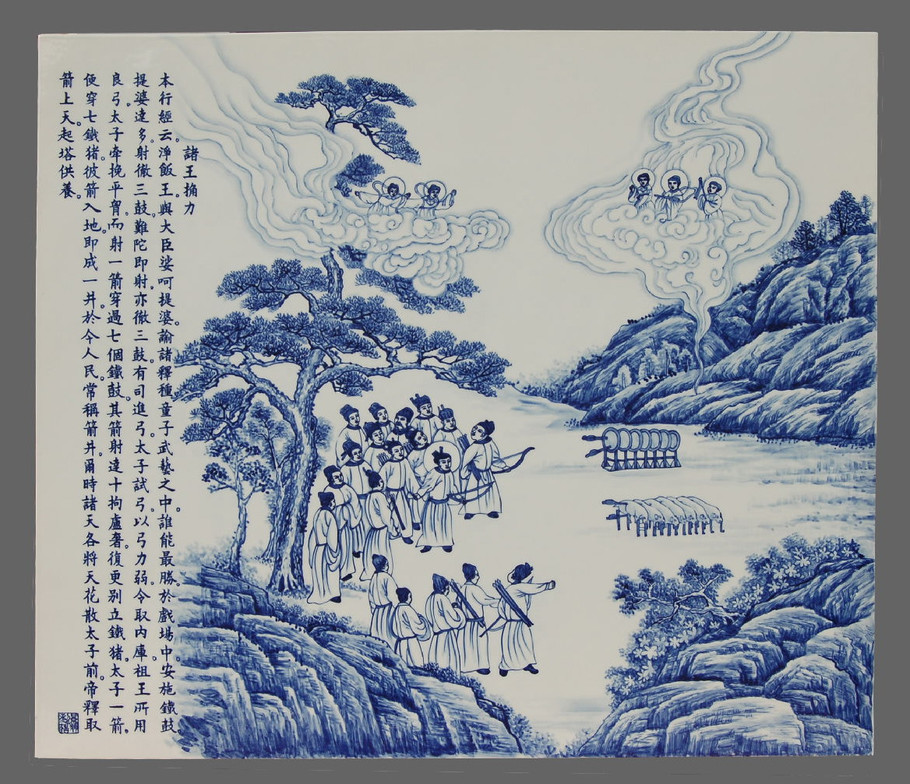 諸王捔力
本行經云。淨飯王與大臣娑呵提婆。諭諸釋種童子武藝之中。誰能最勝。於戲場中。安施鐵鼓
提婆達多。射徹三鼓。難陀即射。亦徹三鼓。有司進弓。太子試弓。以弓力弱。令取內庫。祖王所用
良弓。太子牽挽平胷。而射一箭。穿過七個鐵鼓。其箭射達十拘盧奢。復更別立鐵猪。太子一箭。
便穿七鐵猪。彼箭入地。即成一井。於今人民常稱箭井。爾時諸天。各將天花散太子前。帝釋取
箭上天。起塔供養。